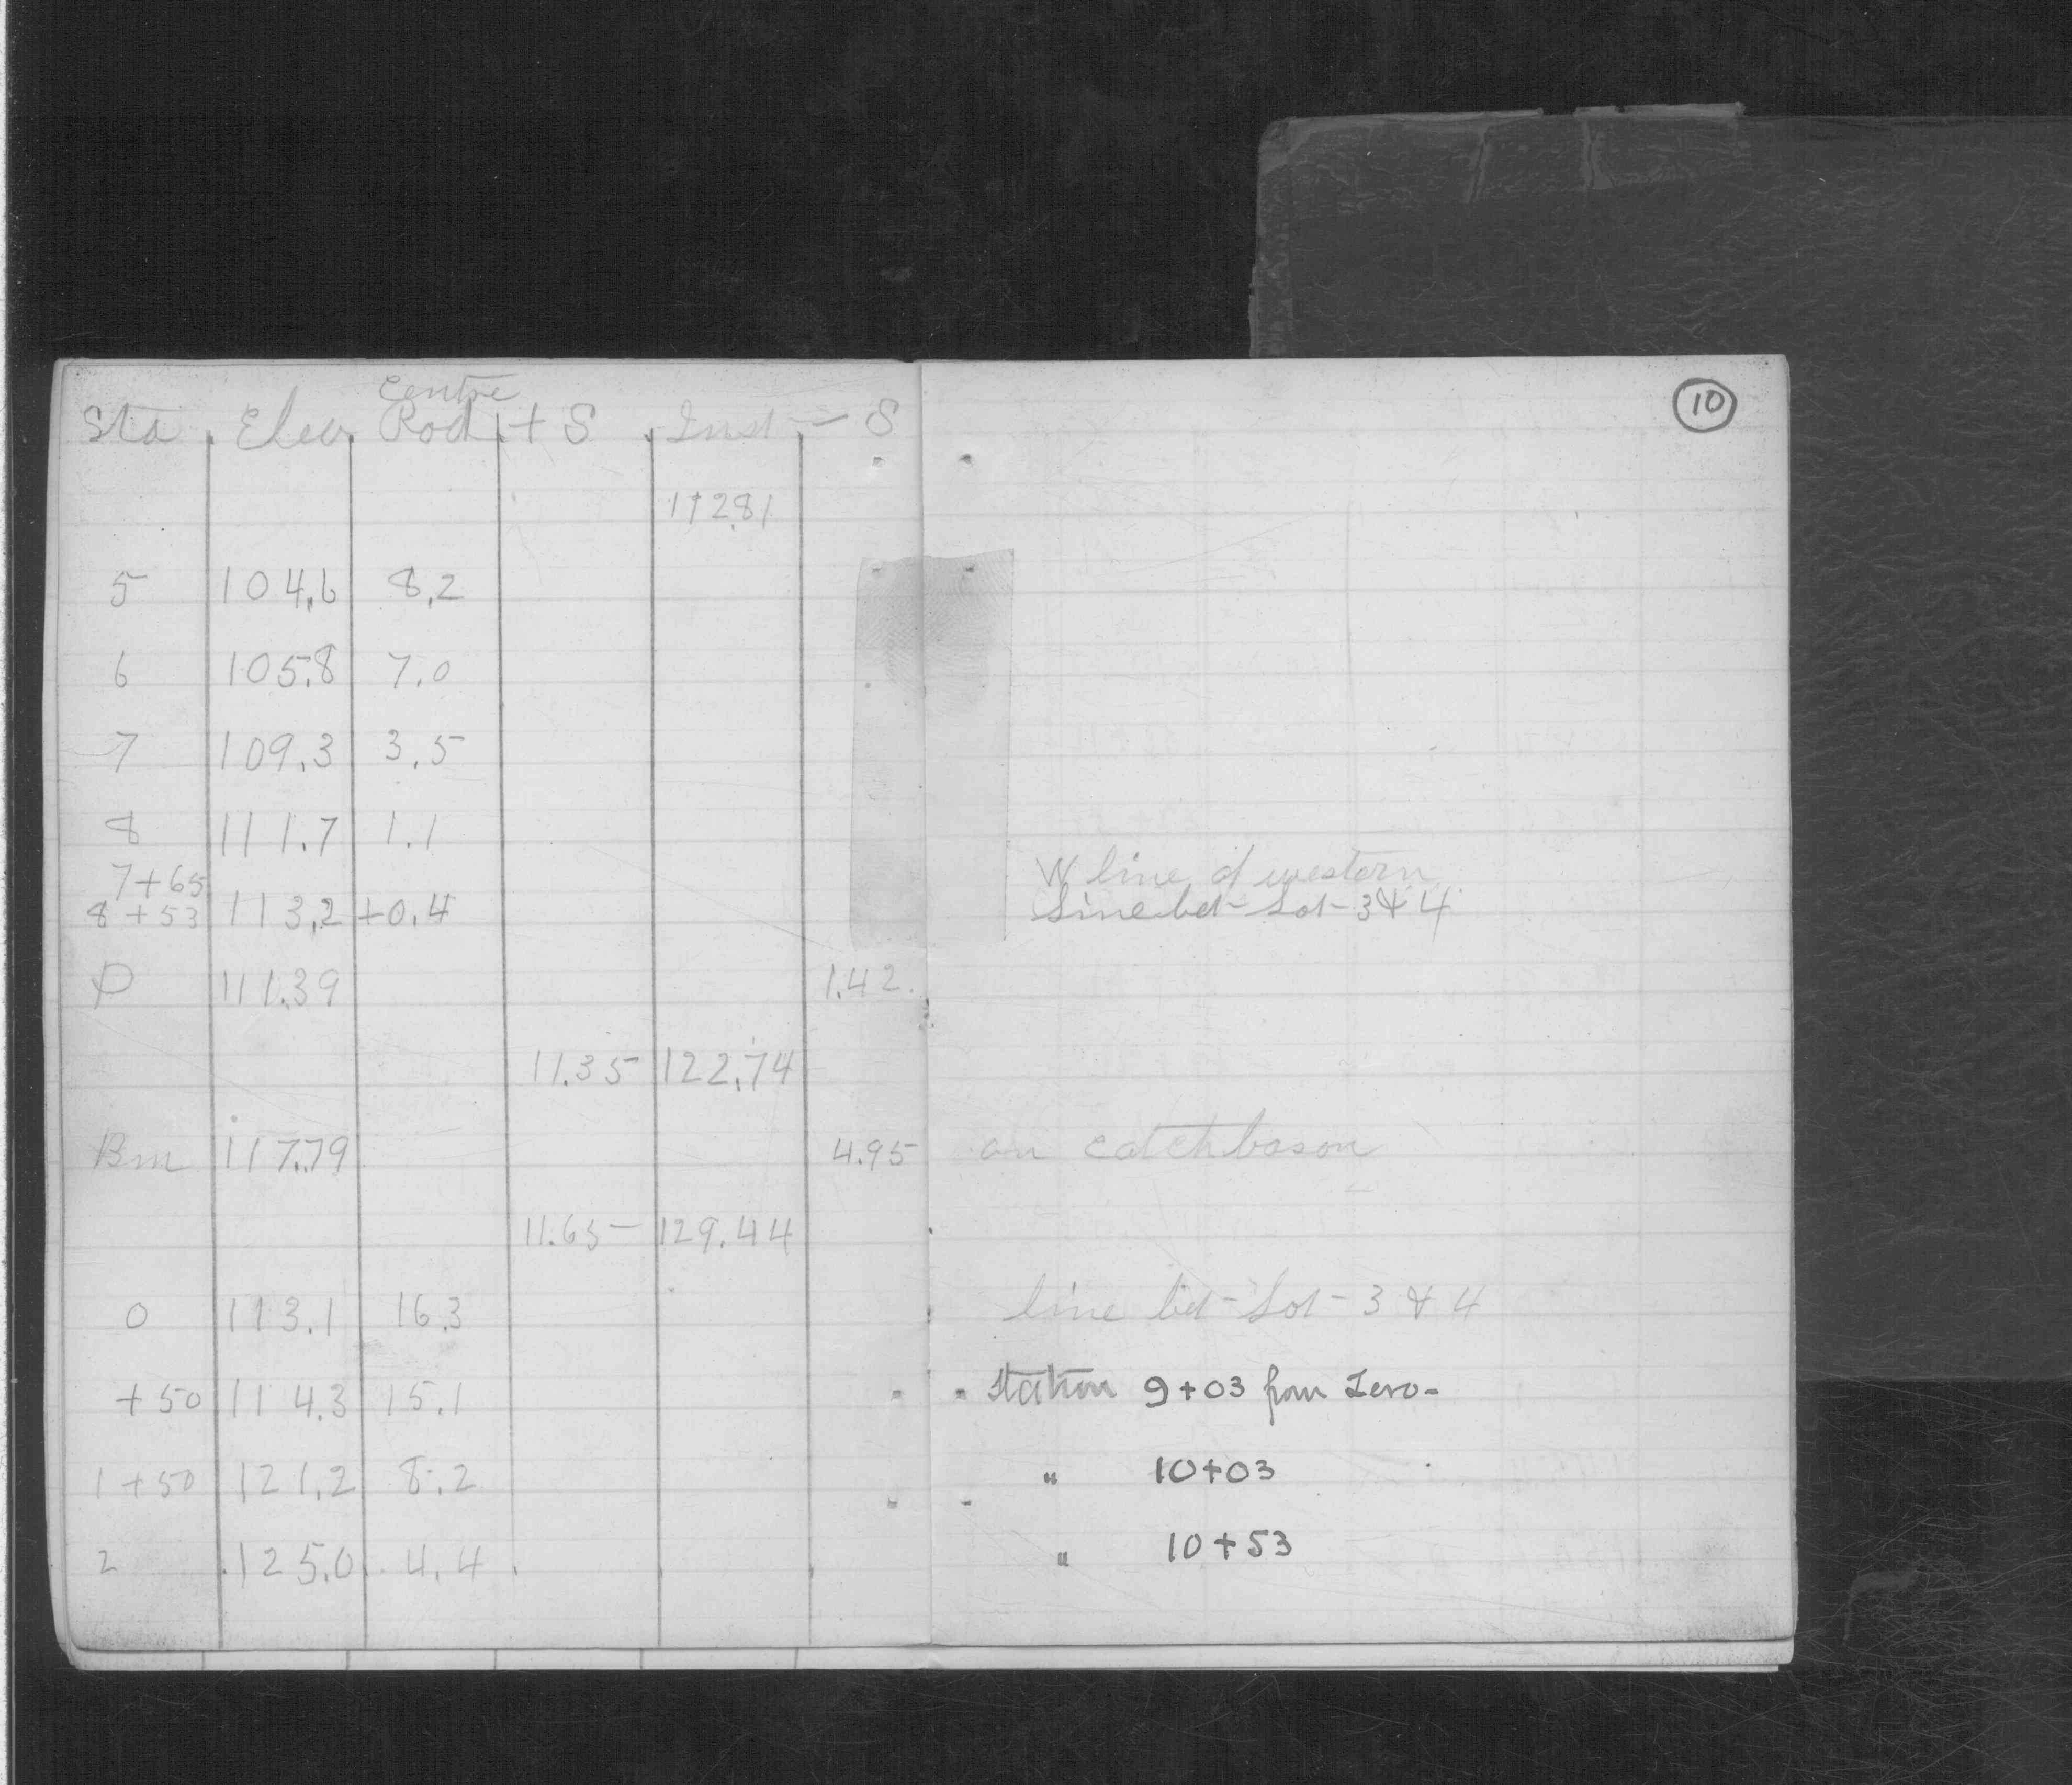 10
centre
Sta Elev Rod + S Inst - S
112.81
5 104.6 8.2
6 105.8 7.0
7 109.3 3.5
8 111.7 1.1
7+65 W line of western
8+53 113.2 +0.4 Line bet Lot 3 & 4
111.39 1.42
11.35 122.74
Bm 117.79 4.95 on catchbason
11.65 129.44
0 113.1 16.3 line bet Lot 3 & 4
+50 114.3 15.1 Station 9+03 from Zero-
1+50 121.2 8.2 " 10+03
2 125.0 4.4 " 10+53